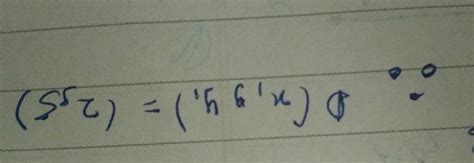 ∴ D (x₁, y₁) = (2, 5)